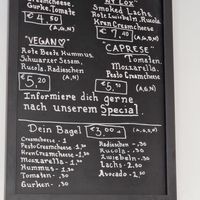 Creamcheese,
Gurke, Tomate
€4,50
(A,G)
"NY LOX"
Smoked Lachs,
Rote Zwiebeln, Rucola,
Kren Creamcheese
€7,40
(A,D,G)
"VEGAN♡"
Rote Beete Hummus,
Schwarzer Sesam,
Rucola, Radieschen
(A,N)
€5,20
"CAPRESE"
Tomaten,
Mozzarella,
Pesto Creamcheese
€5,50
(A,G,H)
Informiere dich gerne
nach unserem Special
Dein Bagel €3,00
Creamcheese - 1
Pesto Creamcheese -
Kren Creamcheese -
Mozzarella - 1
Hummus -
Tomaten - .50
Gurken - .50
Radieschen - .50
Rucola - .50
Zwiebeln - .50
Lachs - 2.50
Avocado - 2.50